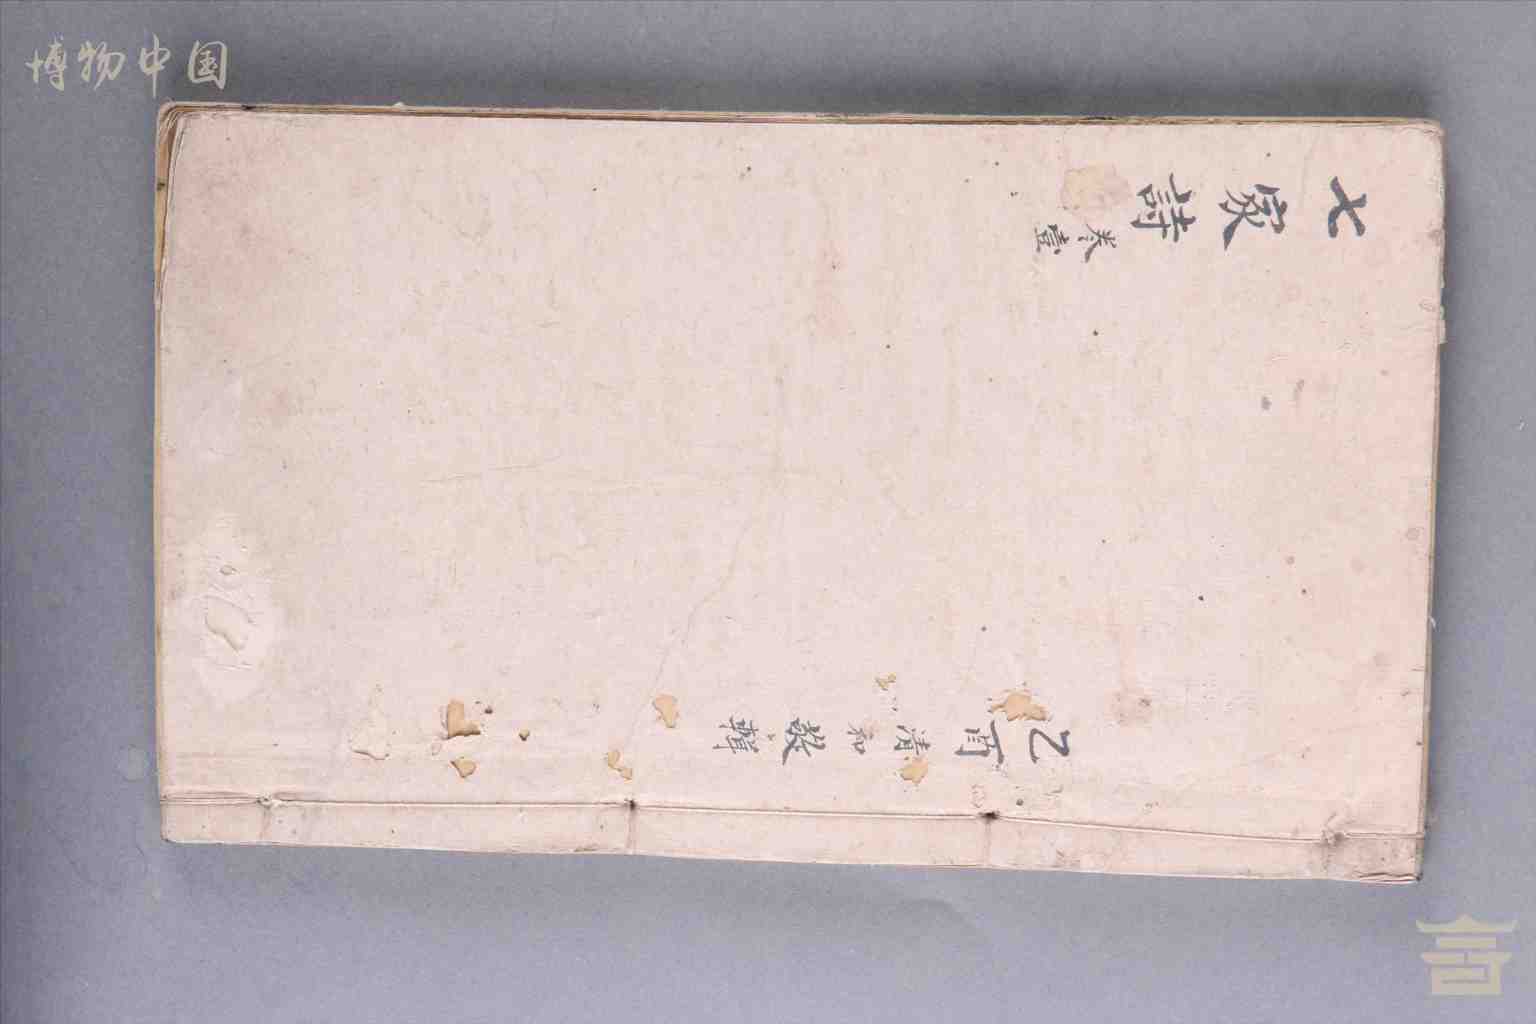 博物中国
七家詩卷壹
乙酉清和
敬輯